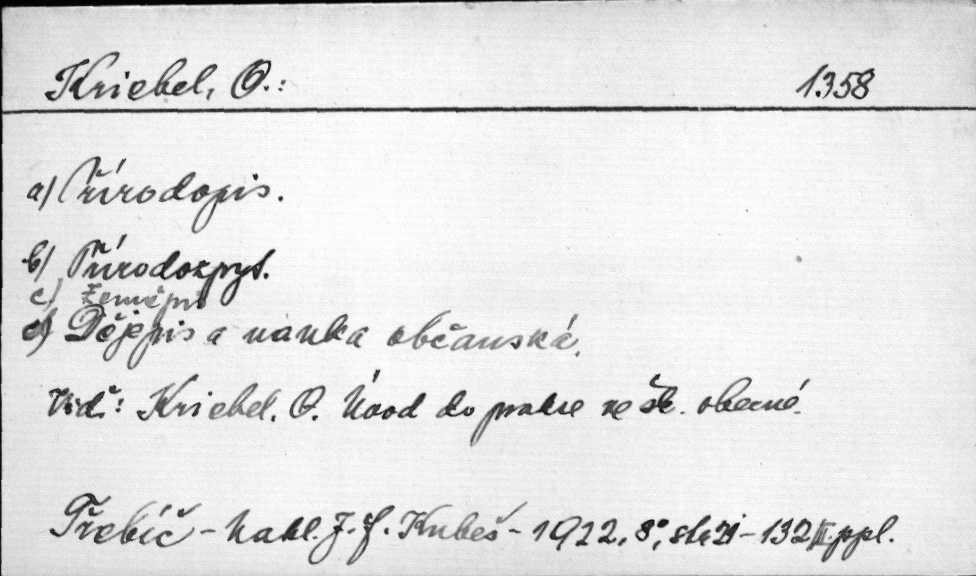 Kriebel, O.: 1358
a) Přírodopis.
b) Přírodozpyt.
c) Zeměpis
d) Dějepis a nauka občanská.
Vidi: Kriebel, O. Úvod do prakse ve šk. obecné.
Třebíč - Nakl. J. F. Kubeš - 1922, 8°, str. - 132 ppl.